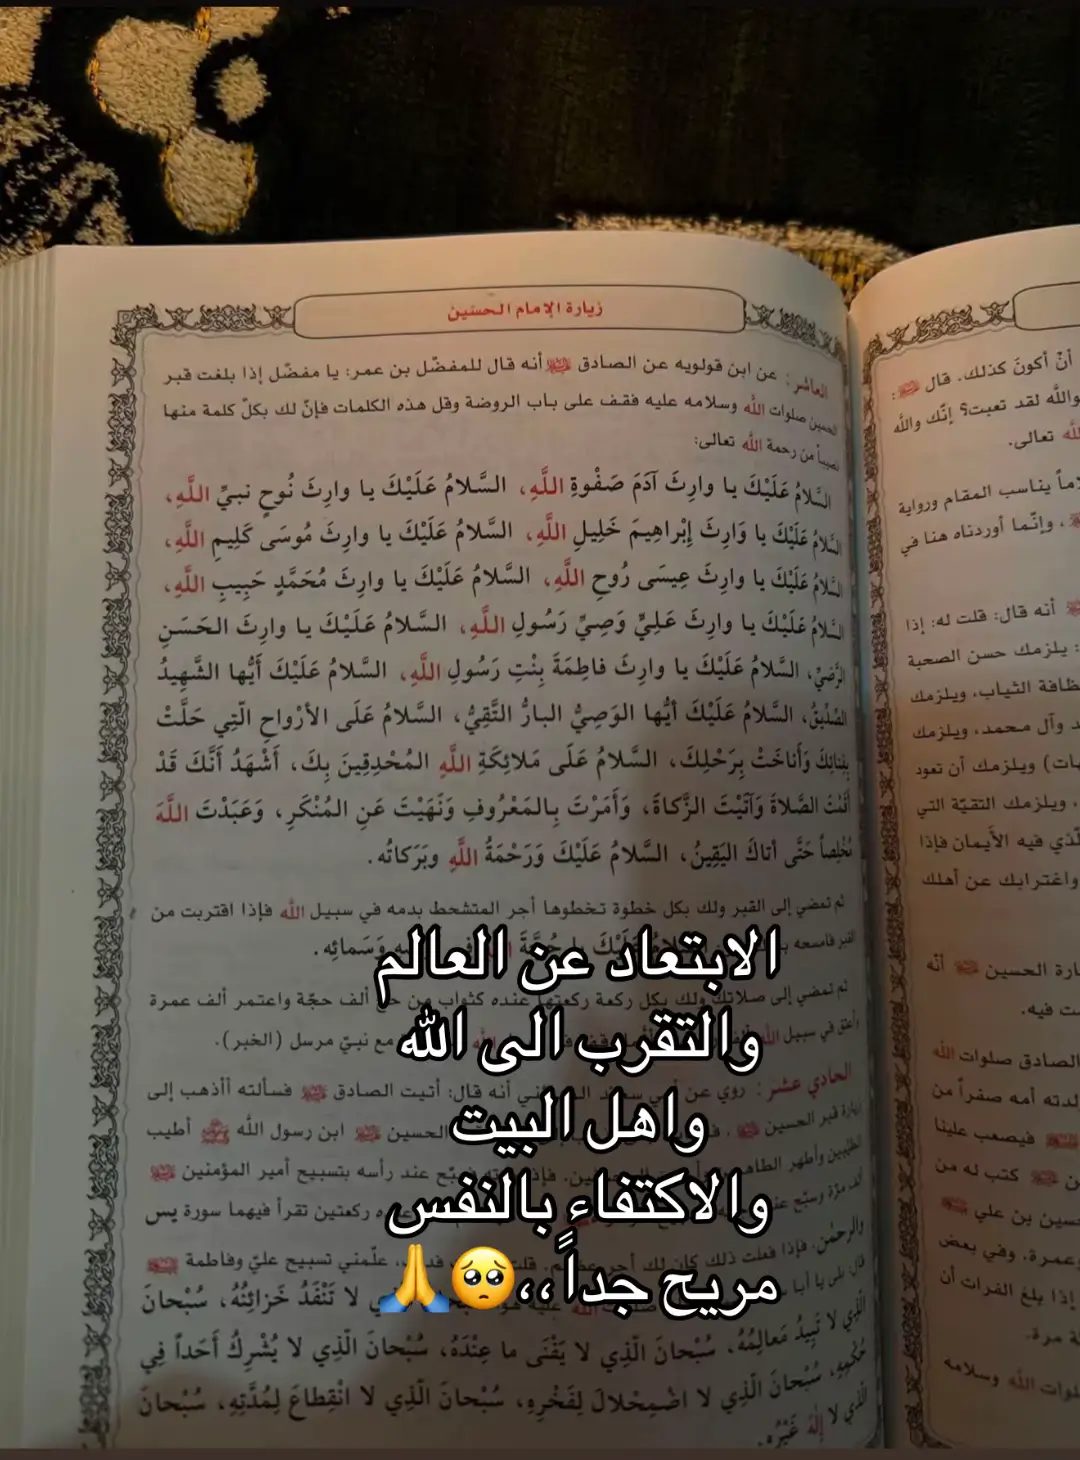 زيارة الإمام الحسين
العاشر: عن ابن قولويه عن الصادق أنه قال للمفضّل بن عمر: يا مفضّل إذا بلغت قبر
الحسين صلوات الله وسلامه عليه فقف على باب الروضة وقل هذه الكلمات فإنّ لك بكلّ كلمة منها
نصيباً من رحمة الله تعالى:
السَّلامُ عَلَيْكَ يا وارِثَ آدَمَ صَفْوةِ اللَّهِ، السَّلامُ عَلَيْكَ يا وارِثَ نُوحٍ نبيِّ اللَّهِ،
السَّلامُ عَلَيْكَ يا وَارِثَ إِبْراهِيمَ خَلِيلِ اللَّهِ، السَّلامُ عَلَيْكَ يا وارِثَ مُوسَى كَلِيمِ اللَّهِ،
السَّلامُ عَلَيْكَ يا وارِثَ عِيسَى رُوحِ اللَّهِ، السَّلامُ عَلَيْكَ يا وارِثَ مُحَمَّدٍ حَبِيبِ اللَّهِ،
السَّلامُ عَلَيْكَ يا وارِثَ عَلِيٍّ وَصِيِّ رَسُولِ اللَّهِ، السَّلامُ عَلَيْكَ يا وارِثَ الحَسَنِ
الرَّضيِّ، السَّلامُ عَلَيْكَ يا وارِثَ فاطِمَةَ بِنْتِ رَسُولِ اللَّهِ، السَّلامُ عَلَيْكَ أَيُّها الشَّهِيدُ
الصِّدِّيقُ، السَّلامُ عَلَيْكَ أَيُّها الوَصِيُّ البارُّ التَّقِيُّ، السَّلامُ عَلَى الأرْواحِ الَّتِي حَلَّتْ
بِفِنائِكَ وَأَناخَتْ بِرَحْلِكَ، السَّلامُ عَلَى مَلائِكَةِ اللَّهِ المُحْدِقِينَ بِكَ، أَشْهَدُ أَنَّكَ قَدْ
أَقَمْتَ الصَّلاةَ وَآتَيْتَ الزَّكاةَ، وَأَمَرْتَ بِالمَعْرُوفِ وَنَهَيْتَ عَنِ المُنْكَرِ، وَعَبَدْتَ اللَّهَ
مُخْلِصاً حَتَّى أتاكَ اليَقِينُ، السَّلامُ عَلَيْكَ وَرَحْمَةُ اللَّهِ وبَرَكاتُه.
ثم تمضي إلى القبر ولك بكل خطوة تخطوها أجر المتشحط بدمه في سبيل الله فإذا اقتربت من
القبر فامسحه السَّلامُ عَلَيْكَ يا حُجَّةَ وَسَمائِه.
ثم تمضي إلى صلاتك ولك بكل ركعة ركعتها عنده كثواب من حج ألف حجّة واعتمر ألف عمرة
وأعتق في سبيل الله مع نبيّ مرسل (الخبر).
الحادي عشر: روي عن أنه قال: أتيت الصادق فسألته أأذهب إلى
زيارة قبر الحسين الحسين ابن رسول الله أطيب
الطيبين وأطهر الطاهرين عند رأسه بتسبيح أمير المؤمنين
ألف مرّة وسبّح عند ركعتين تقرأ فيهما سورة يس
والرحمن، فإذا فعلت ذلك كان لك أجر علّمني تسبيح عليّ وفاطمة
قال: بلى يا أبا لا تَنْفَدُ خَزائِنُهُ، سُبْحانَ
الَّذِي لا تَبِيدُ مَعالِمُهُ، سُبْحانَ الَّذِي لا يَفْنَى ما عِنْدَهُ، سُبْحانَ الَّذِي لا يُشْرِكُ أَحَداً فِي
حُكْمِهِ، سُبْحانَ الَّذِي لا اضْمِحْلالَ لِفَخْرِهِ، سُبْحانَ الَّذِي لا انْقِطاعَ لِمُدَّتِهِ، سُبْحانَ
الَّذِي لا إِلَهَ غَيْرُه.
أنْ أكونَ كذلك. قال:
والله لقد تعبت؟ إنّك والله
الله تعالى.
يناسب المقام ورواية
، وإنّما أوردناه هنا في
أنه قال: قلت له: إذا
: يلزمك حسن الصحبة
نظافة الثياب، ويلزمك
وآل محمد، ويلزمك
ويلزمك أن تعود
، ويلزمك التقيّة التي
الّذي فيه الأيمان فإذا
واغترابك عن أهلك
زيارة الحسين أنّه
فيه.
الصادق صلوات الله
ولدته أمه صفراً من
فيصعب علينا
كتب له من
حسين بن علي
وعمرة، وفي بعض
إذا بلغ الفرات أن
مرة.
صلوات الله وسلامه
الابتعاد عن العالم
والتقرب الى الله
واهل البيت
والاكتفاء بالنفس
مريح جداً،،🥺🙏